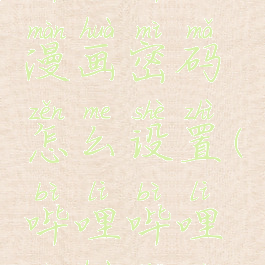 màn huà mì mǎ
漫画密码
zěn me shè zhì
怎么设置(
bì lī bì lī
哔哩哔哩